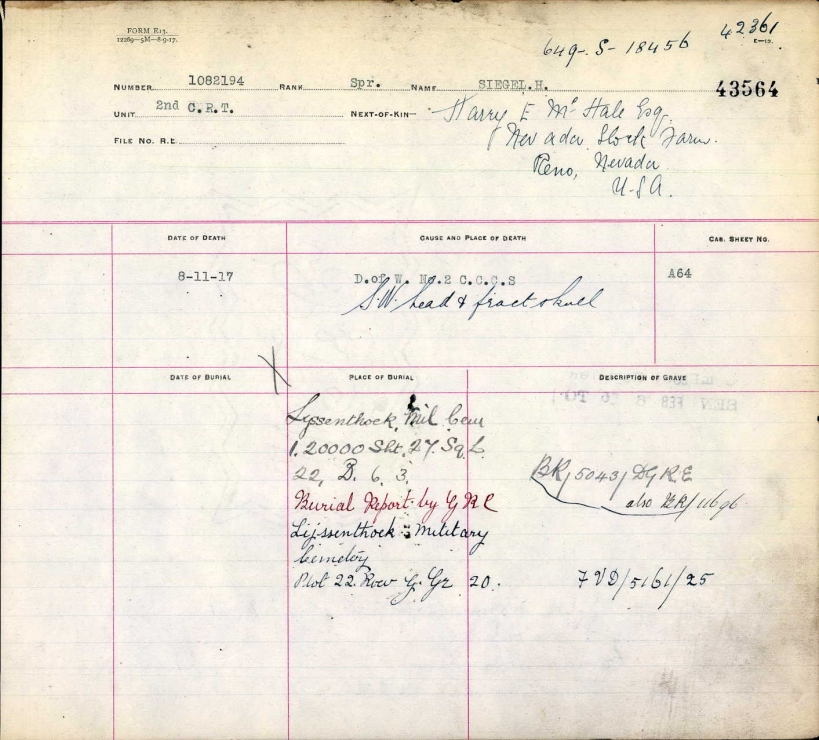 FORM E13.
12269—5M—8-9-17.
649-S-18456
42361
E—13.
NUMBER 1082194 RANK Spr. NAME SIEGEL.H. 43564
UNIT 2nd C.R.T. NEXT-OF-KIN— Harry E McHale Esq.
FILE NO. R.L. Nevada Stock Farm.
Reno, Nevada
U.S.A.
DATE OF DEATH CAUSE AND PLACE OF DEATH CAS. SHEET NO.
8-11-17 D.of W. No.2 C.C.C.S A64
S.W. head & fract skull
DATE OF BURIAL X PLACE OF BURIAL DESCRIPTION OF GRAVE
Lyssenthock Mil Cem
1.20000 Sht. 27. Sq L.
22, D. 6. 3. BR/5043/DGRE
Burial Report by G R C also
Lijssenthoek Military
Cemetery
Plot 22. Row G. Gr 20. 7VD/5161/25